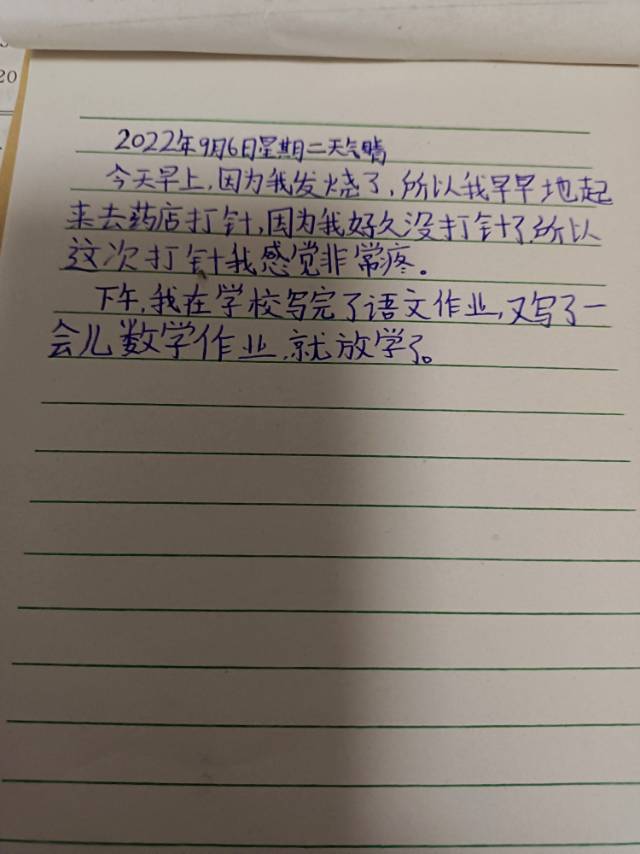 20
2022年9月6日星期二天气晴
今天早上,因为我发烧了,所以我早早地起
来去药店打针,因为我好久没打针了,所以
这次打针我感觉非常疼。
下午,我在学校写完了语文作业,又写了一
会儿数学作业,就放学了。